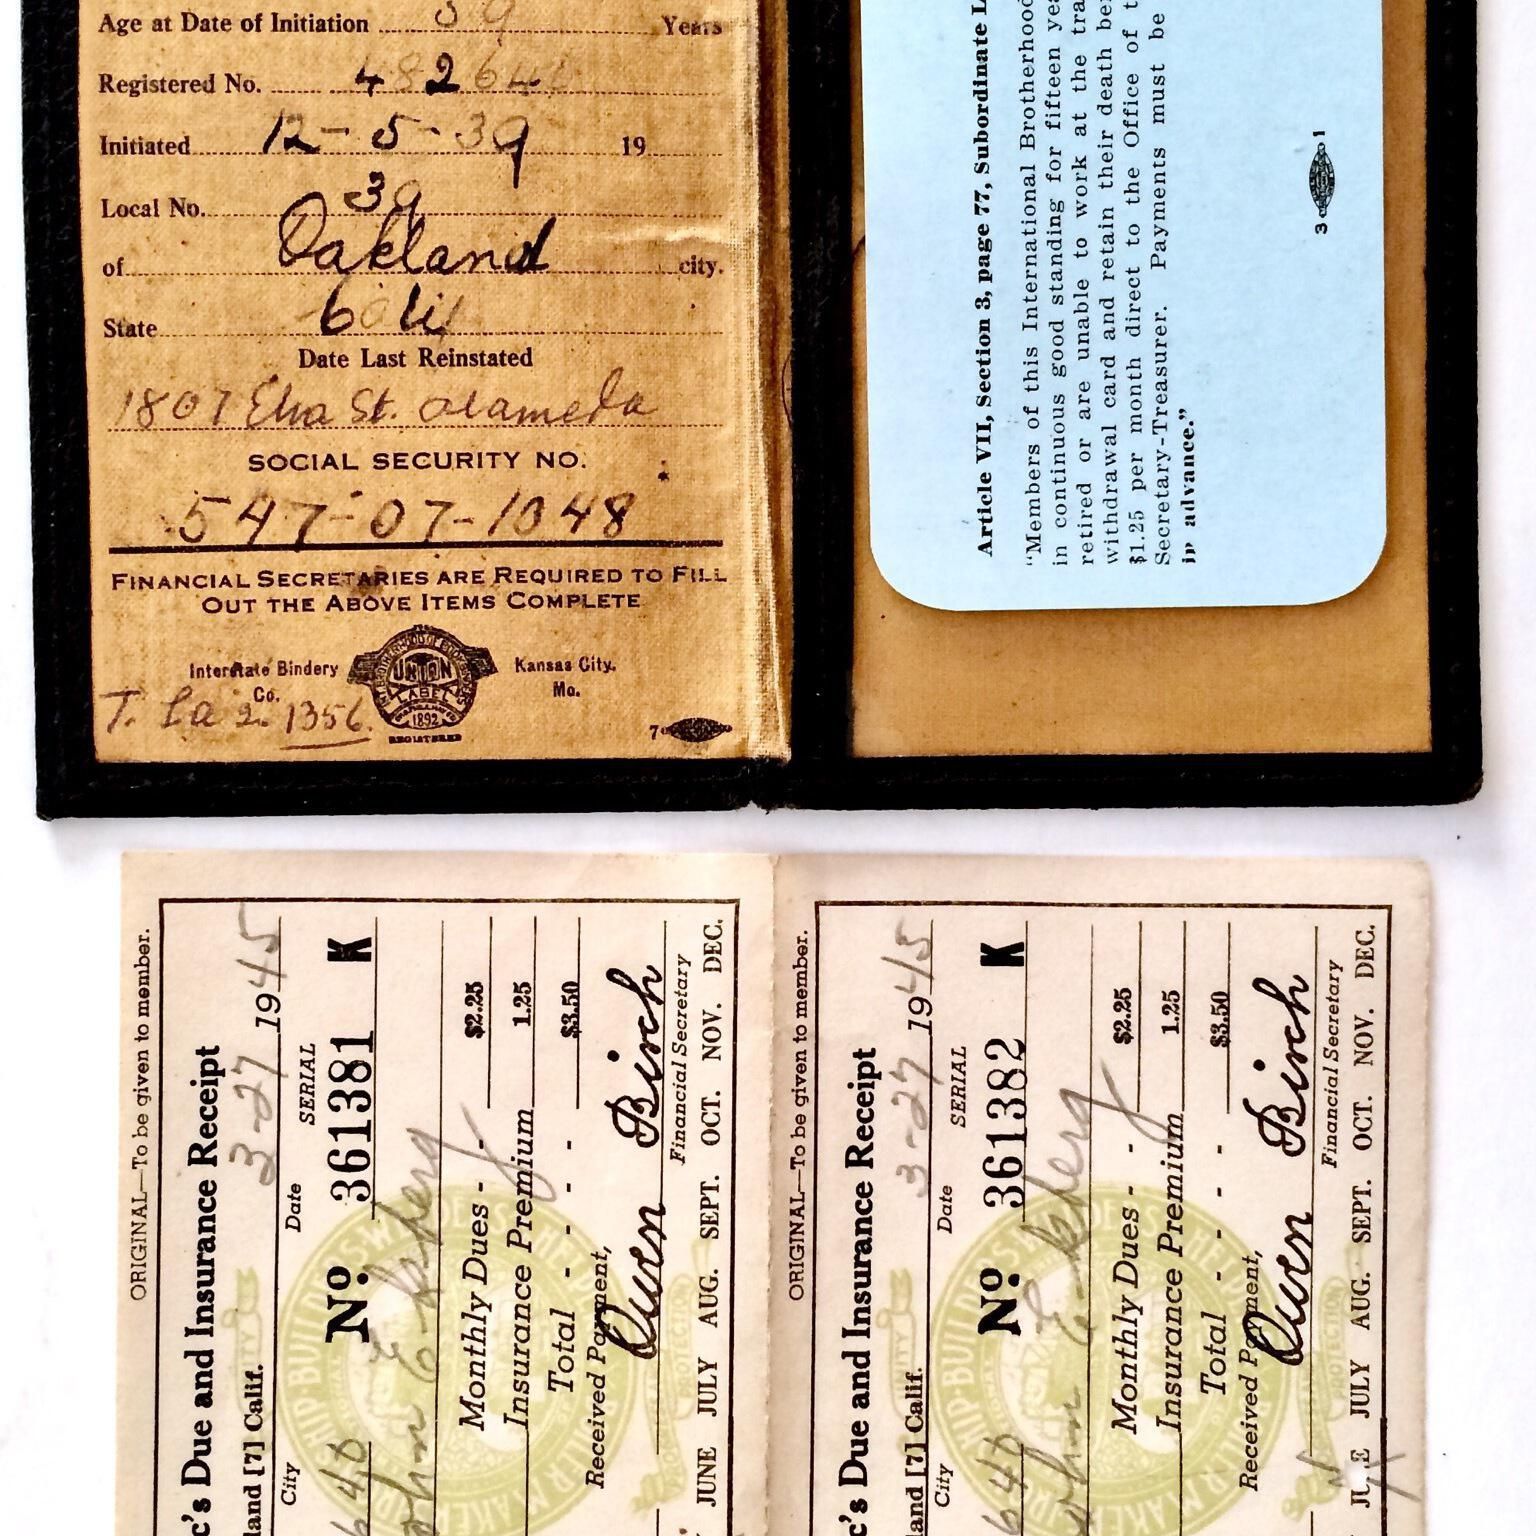 Age at Date of Initiation 39 Years
Registered No. 48264
Initiated 12-5-39 19
Local No. 39
of Oakland city.
State Calif
Date Last Reinstated
1807 St. Alameda
SOCIAL SECURITY NO.
547-07-1048
FINANCIAL SECRETARIES ARE REQUIRED TO FILL
OUT THE ABOVE ITEMS COMPLETE
Interstate Bindery Co.
UNION LABEL
1892
REGISTERED
Kansas City. Mo.
T. La 2. 1356
7
Article VII, Section 3, page 77, Subordinate L
"Members of this International Brotherhood
in continuous good standing for fifteen yea
retired or are unable to work at the tra
withdrawal card and retain their death be
$1.25 per month direct to the Office of t
Secretary-Treasurer. Payments must be
in advance."
3 1
ORIGINAL—To be given to member.
c's Due and Insurance Receipt
land [7] Calif. 3-27 1945
City Date
SERIAL
640 No. 361381 K
ohn
Monthly Dues - - $2.25
Insurance Premium 1.25
Total - - - - $3.50
Received Payment,
Owen Birch
Financial Secretary
JUNE JULY AUG. SEPT. OCT. NOV. DEC.
ORIGINAL—To be given to member.
c's Due and Insurance Receipt
land [7] Calif. 3-27 1945
City Date
SERIAL
640 No. 361382 K
ohn
Monthly Dues - - $2.25
Insurance Premium 1.25
Total - - - - $3.50
Received Payment,
Owen Birch
Financial Secretary
JUNE JULY AUG. SEPT. OCT. NOV. DEC.